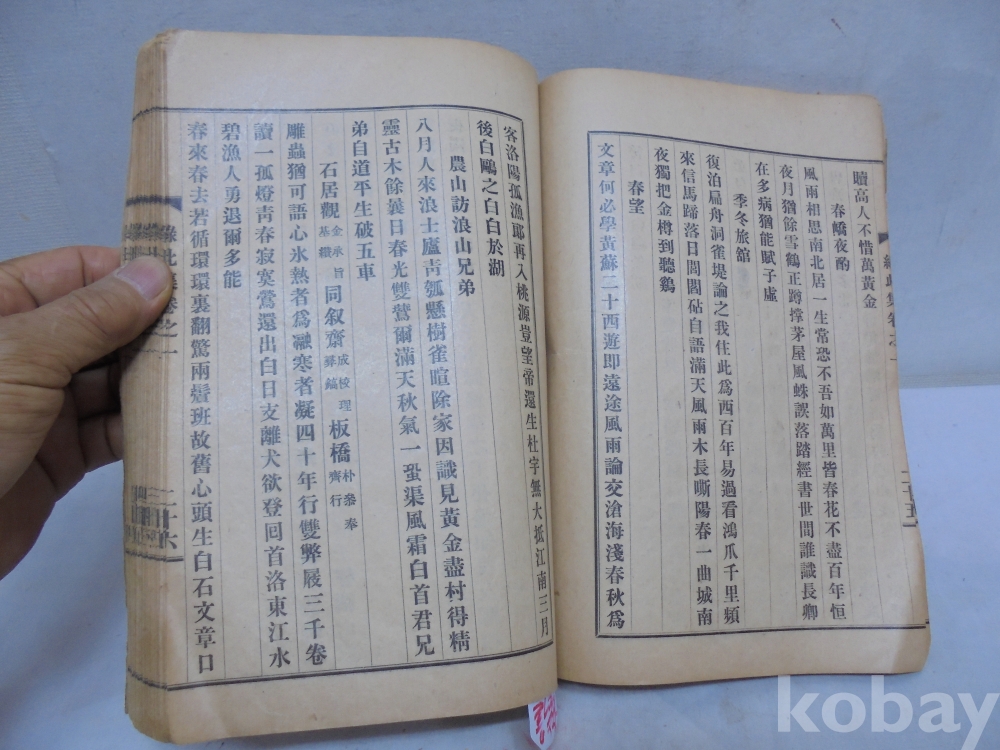 贖高人不惜萬黃金
春嶠夜酌
風雨相思南北居一生常恐不吾如萬里皆春花不盡百年恒
夜月猶餘雪鶴正蹲撑茅屋風蛛誤落踏經書世間誰識長卿
在多病猶能賦子虛
季冬旅舘
復泊扁舟洞雀堤論之我住此爲西百年易過看鴻爪千里頻
來信馬蹄落日閭閻砧自語滿天風雨木長嘶陽春一曲城南
夜獨把金樽到聽鷄
春望
文章何必學黃蘇二十西遊即遠途風雨論交滄海淺春秋爲
二十五
客洛陽孤漁郞再入桃源豈望帝還生杜字無大抵江南三月
後白鷗之白白於湖
農山訪浪山兄弟
八月人來浪士廬靑瓠懸樹雀暄除家因識見黃金盡村得精
靈古木餘曩日春光雙鶯爾滿天秋氣一蛩渠風霜白首君兄
弟自道平生破五車
石居觀金承旨基纘同叙齋成校理彛鎬板橋朴參奉齊行
雕蟲猶可語心氷熱者爲融寒者凝四十年行雙弊履三千卷
讀一孤燈靑春寂寞鶯還出白日支離犬欲登回首洛東江水
碧漁人勇退爾多能
春來春去若循環環裏翻驚兩鬢班故舊心頭生白石文章口
二十六
kobay